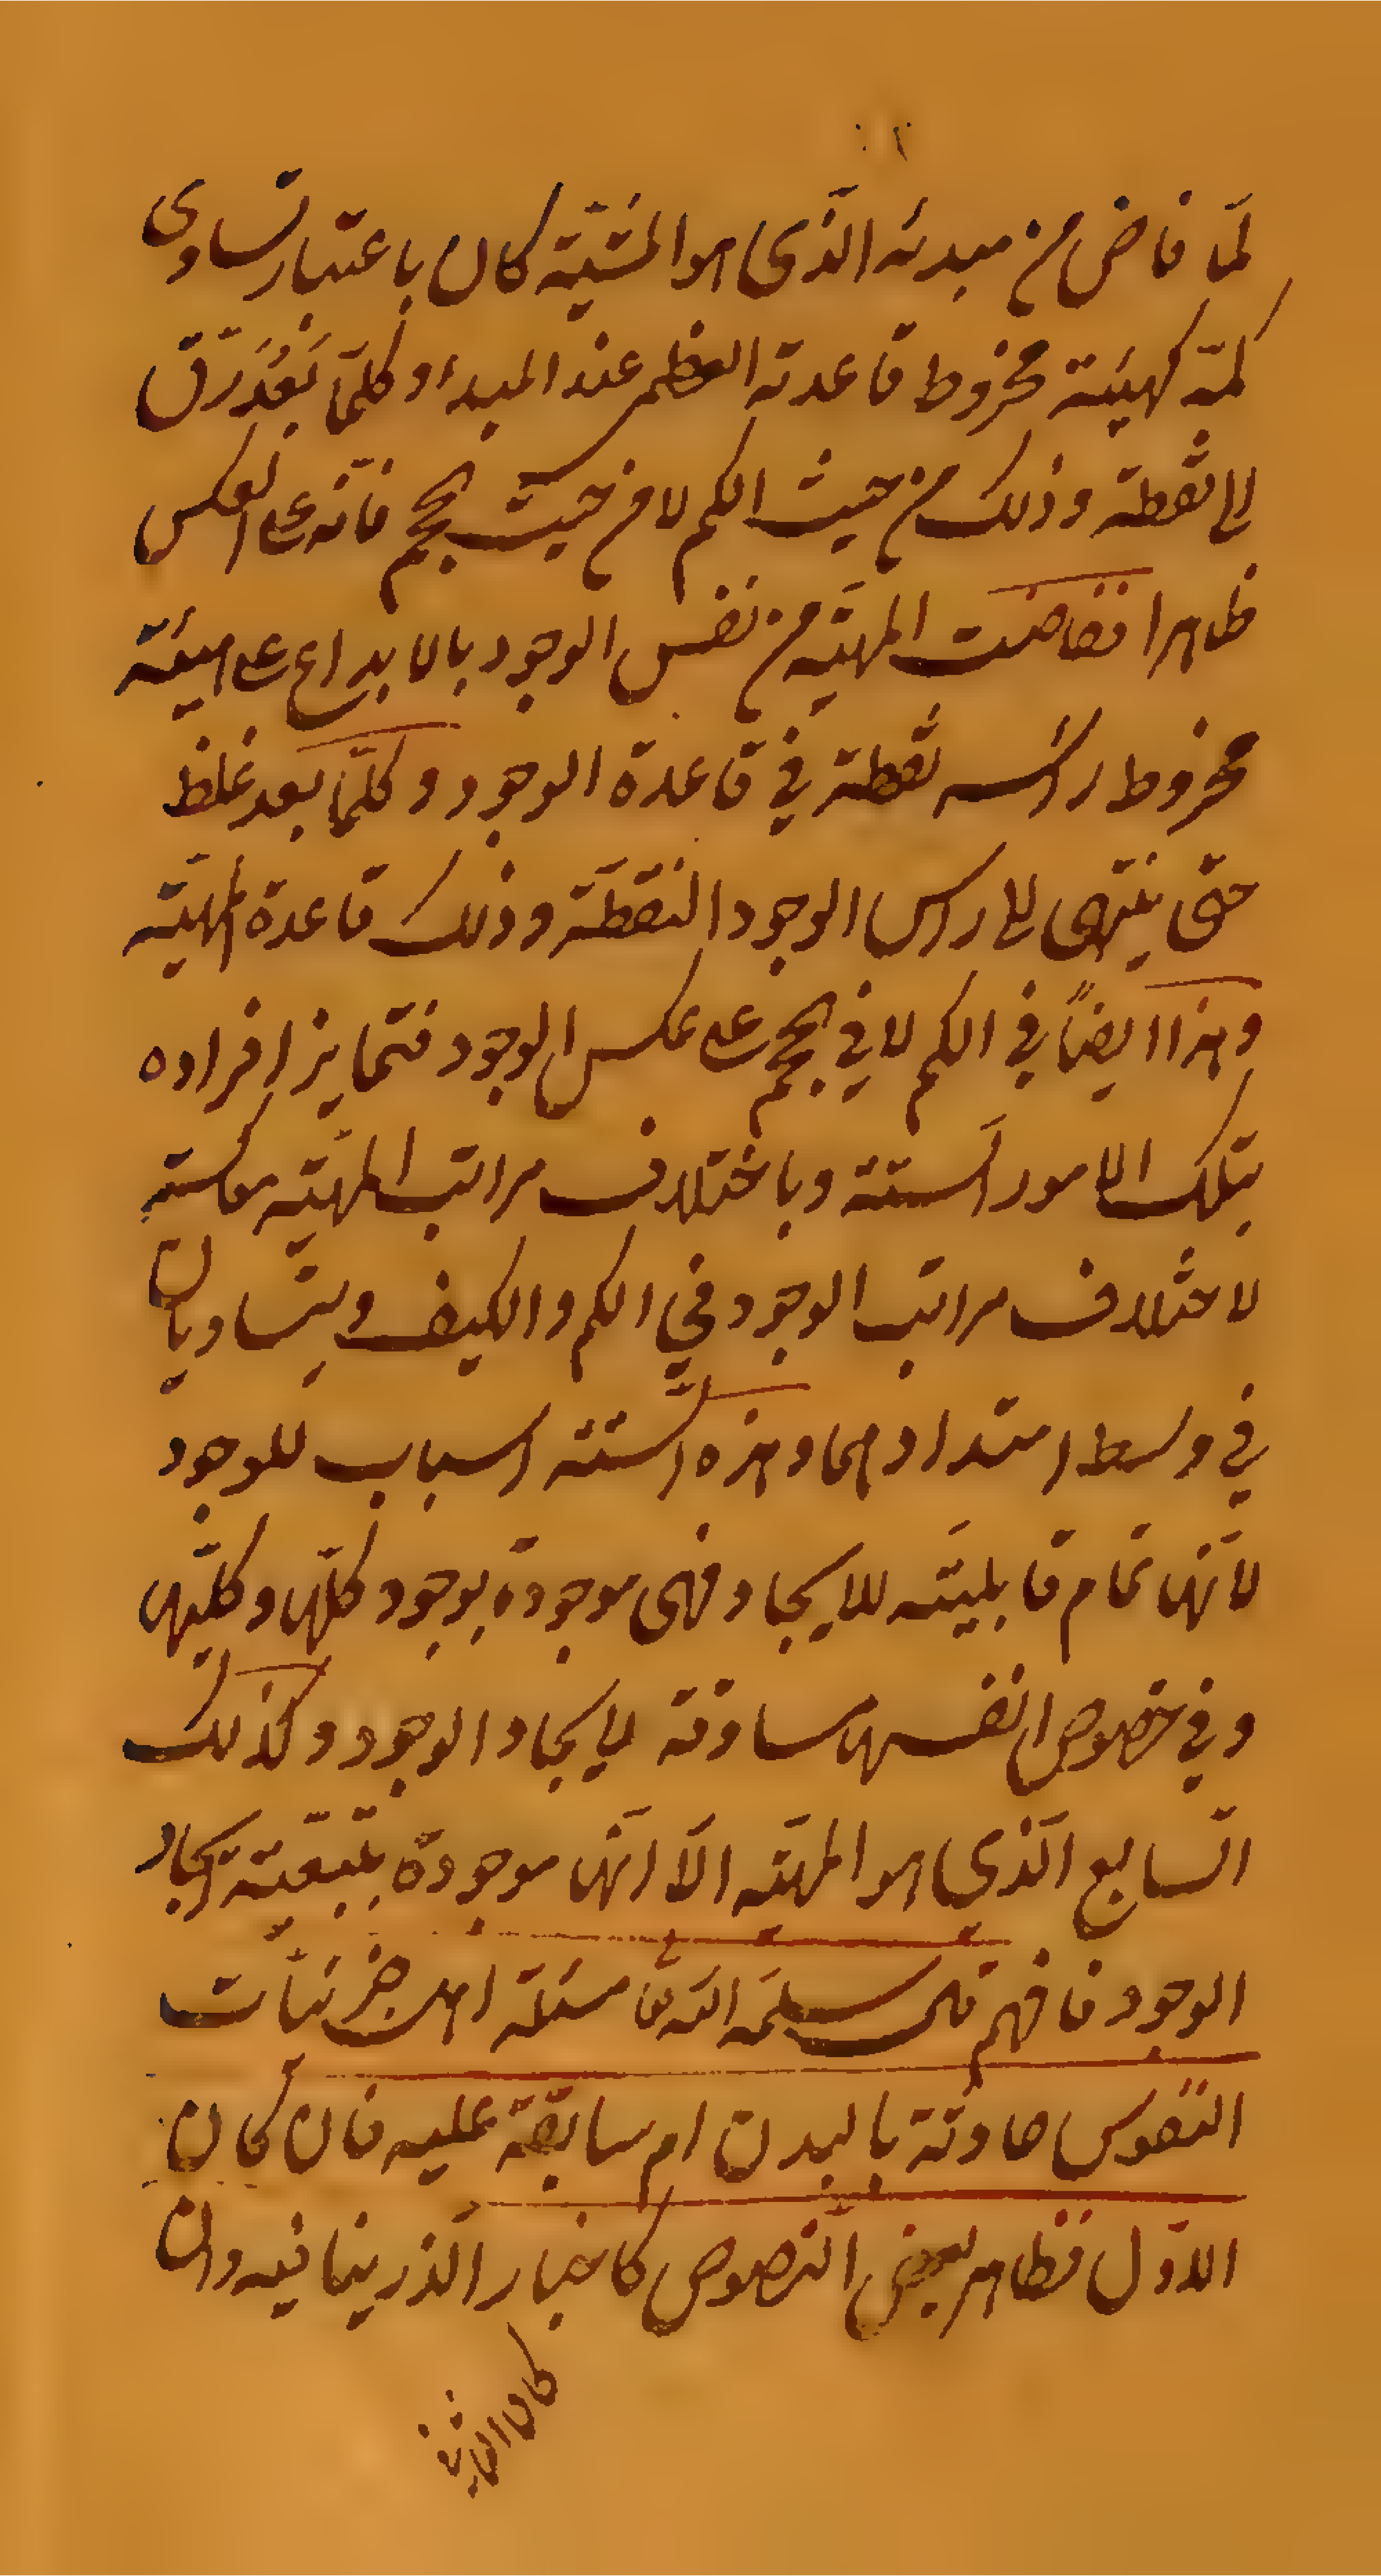 لمّا فاض من مبدئه الّذى هو المشيّة كان باعتبار تساوى
كمّه كهيئة مخروط قاعدته العظمى عند المبدأ وكلّما بَعُدَ رَقّ
الى نقطة وذلك من حيث الكم لا من حيث الحجم فانّه على العكس
ظاهرا ففاضت المهيّة من نفس الوجود بالابداع على هيئة
مخروط رأسه نقطة في قاعدة الوجود وكلّما بعد غلظ
حتى ينتهى الى راس الوجود النقطة وذلك قاعدة المهيّة
وهذا ايضاً في الكم لا في الحجم على عكس الوجود فتمايز افراده
بتلك الامور الستة وباختلاف مراتب المهيّة معاكسة
لاختلاف مراتب الوجود في الكم والكيف ويتساويان
في وسط امتدادهما وهذه الستّة اسباب للوجود
لانّها تمام قابليّته للايجاد فهى موجودة بوجود كلّها وكليّها
وفي خصوص انفسها مساوقة لايجاد الوجود وكذلك
السابع الّذي هو المهيّة الّا انّها موجودة بتبعيّة ايجاد
الوجود فافهم قال سلمه الله تعا مسئلة اهل جزئيّات
النفوس حادثة بالبدن ام سابقة عليه فان كان
الاوّل فظاهر بعض النصوص كاخبار الذر ينافيه وان
كان الثاني